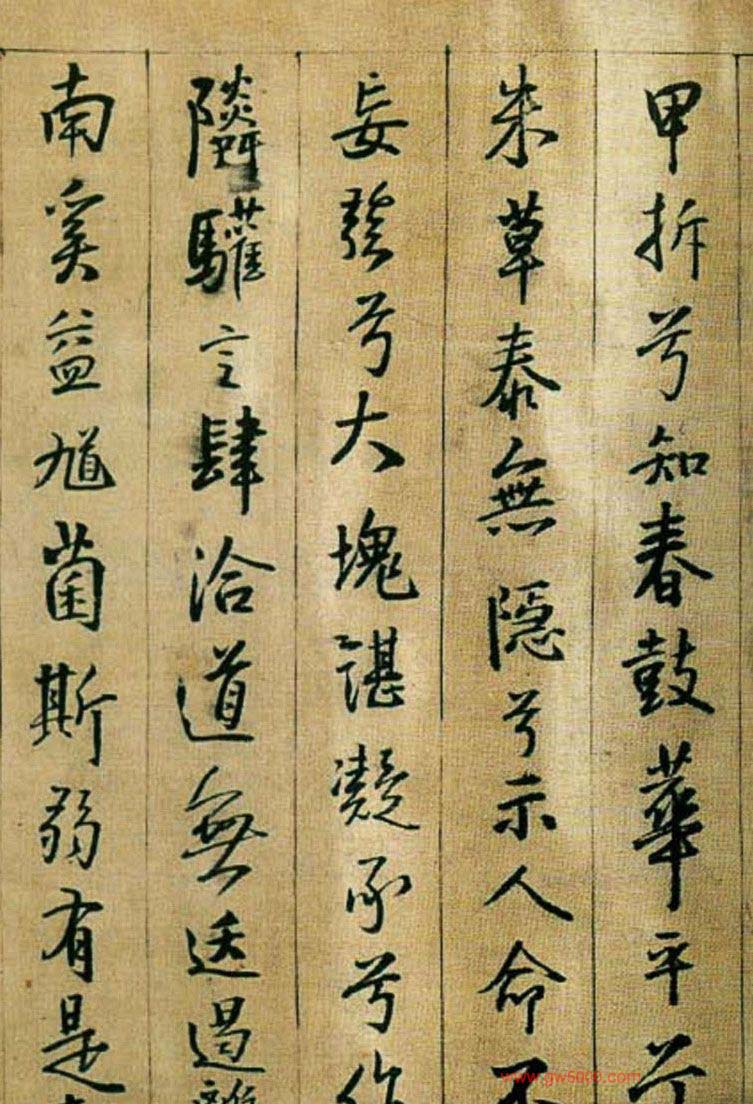 甲拆兮知春鼓華平兮
朱草泰無隱兮示人命不
妄發兮大塊諶凝承兮作
驩言肆洽道無迭遏離
南奚益馗菌斯弱有是
www.gw5000.com